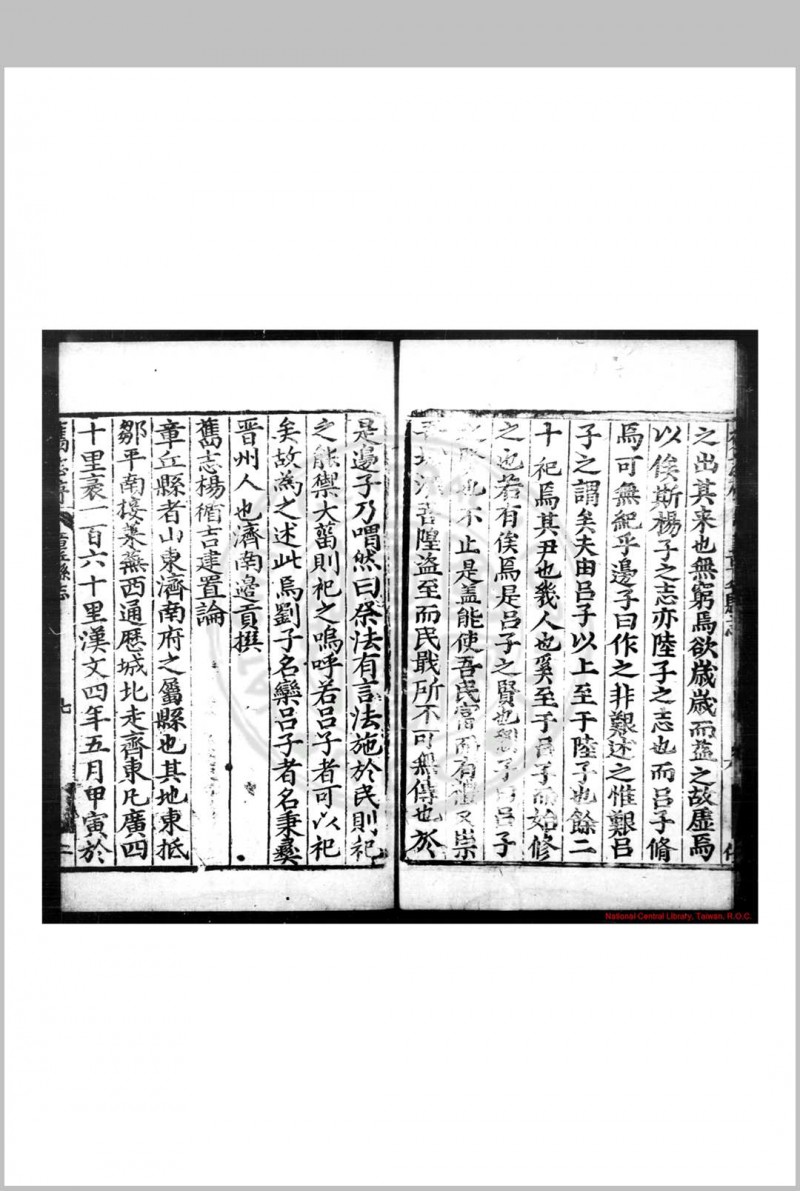 之出其来也無窮焉欲歳歳而益之故虚焉
以俟斯楊子之志亦陸子之志也而吕子脩
焉可無紀乎邊子曰作之非艱述之惟艱吕
子之謂矣夫由吕子以上至于陸子也餘二
十祀焉其丑也幾人也奚至于吕子而始修
之也若有俟焉是吕子之賢也劉子曰吕子
之賢也不止是盖能使吾民富而有禮又崇
善隍盗至而民戢所不可無傳也於
是邊子乃喟然曰祭法有言法施於民則祀
之能禦大菑則祀之嗚呼若吕子者可以祀
矣故為之述此焉劉子名欒吕子者名秉彜
晋州人也濟南邉貢撰
舊志楊循吉建置論
章丘縣者山東濟南府之屬縣也其地東抵
鄒平南接萊蕪西通歷城北走齊東凡廣四
十里袤一百六十里漢文四年五月甲寅於
舊志序 章丘縣志 七
National Central Library, Taiwan, R.O.C.